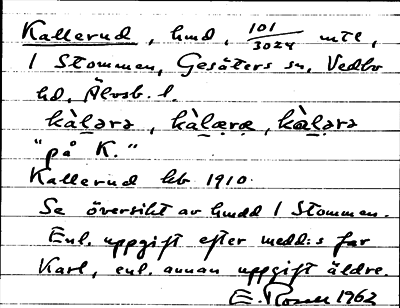 Kallerud, hmd, 101/3024 mtl,
1 Stommen, Gesäters sn, Vedbo
hd, Älvsb. l.
kàl̠ərə, kàl̠æræ, kàl̠ərə
"på K."
Kallerud hb 1910.
Se översikt av hmdd 1 Stommen.
Enl. uppgift efter medd:s far
Karl, enl. annan uppgift äldre.
E. Rosell 1962